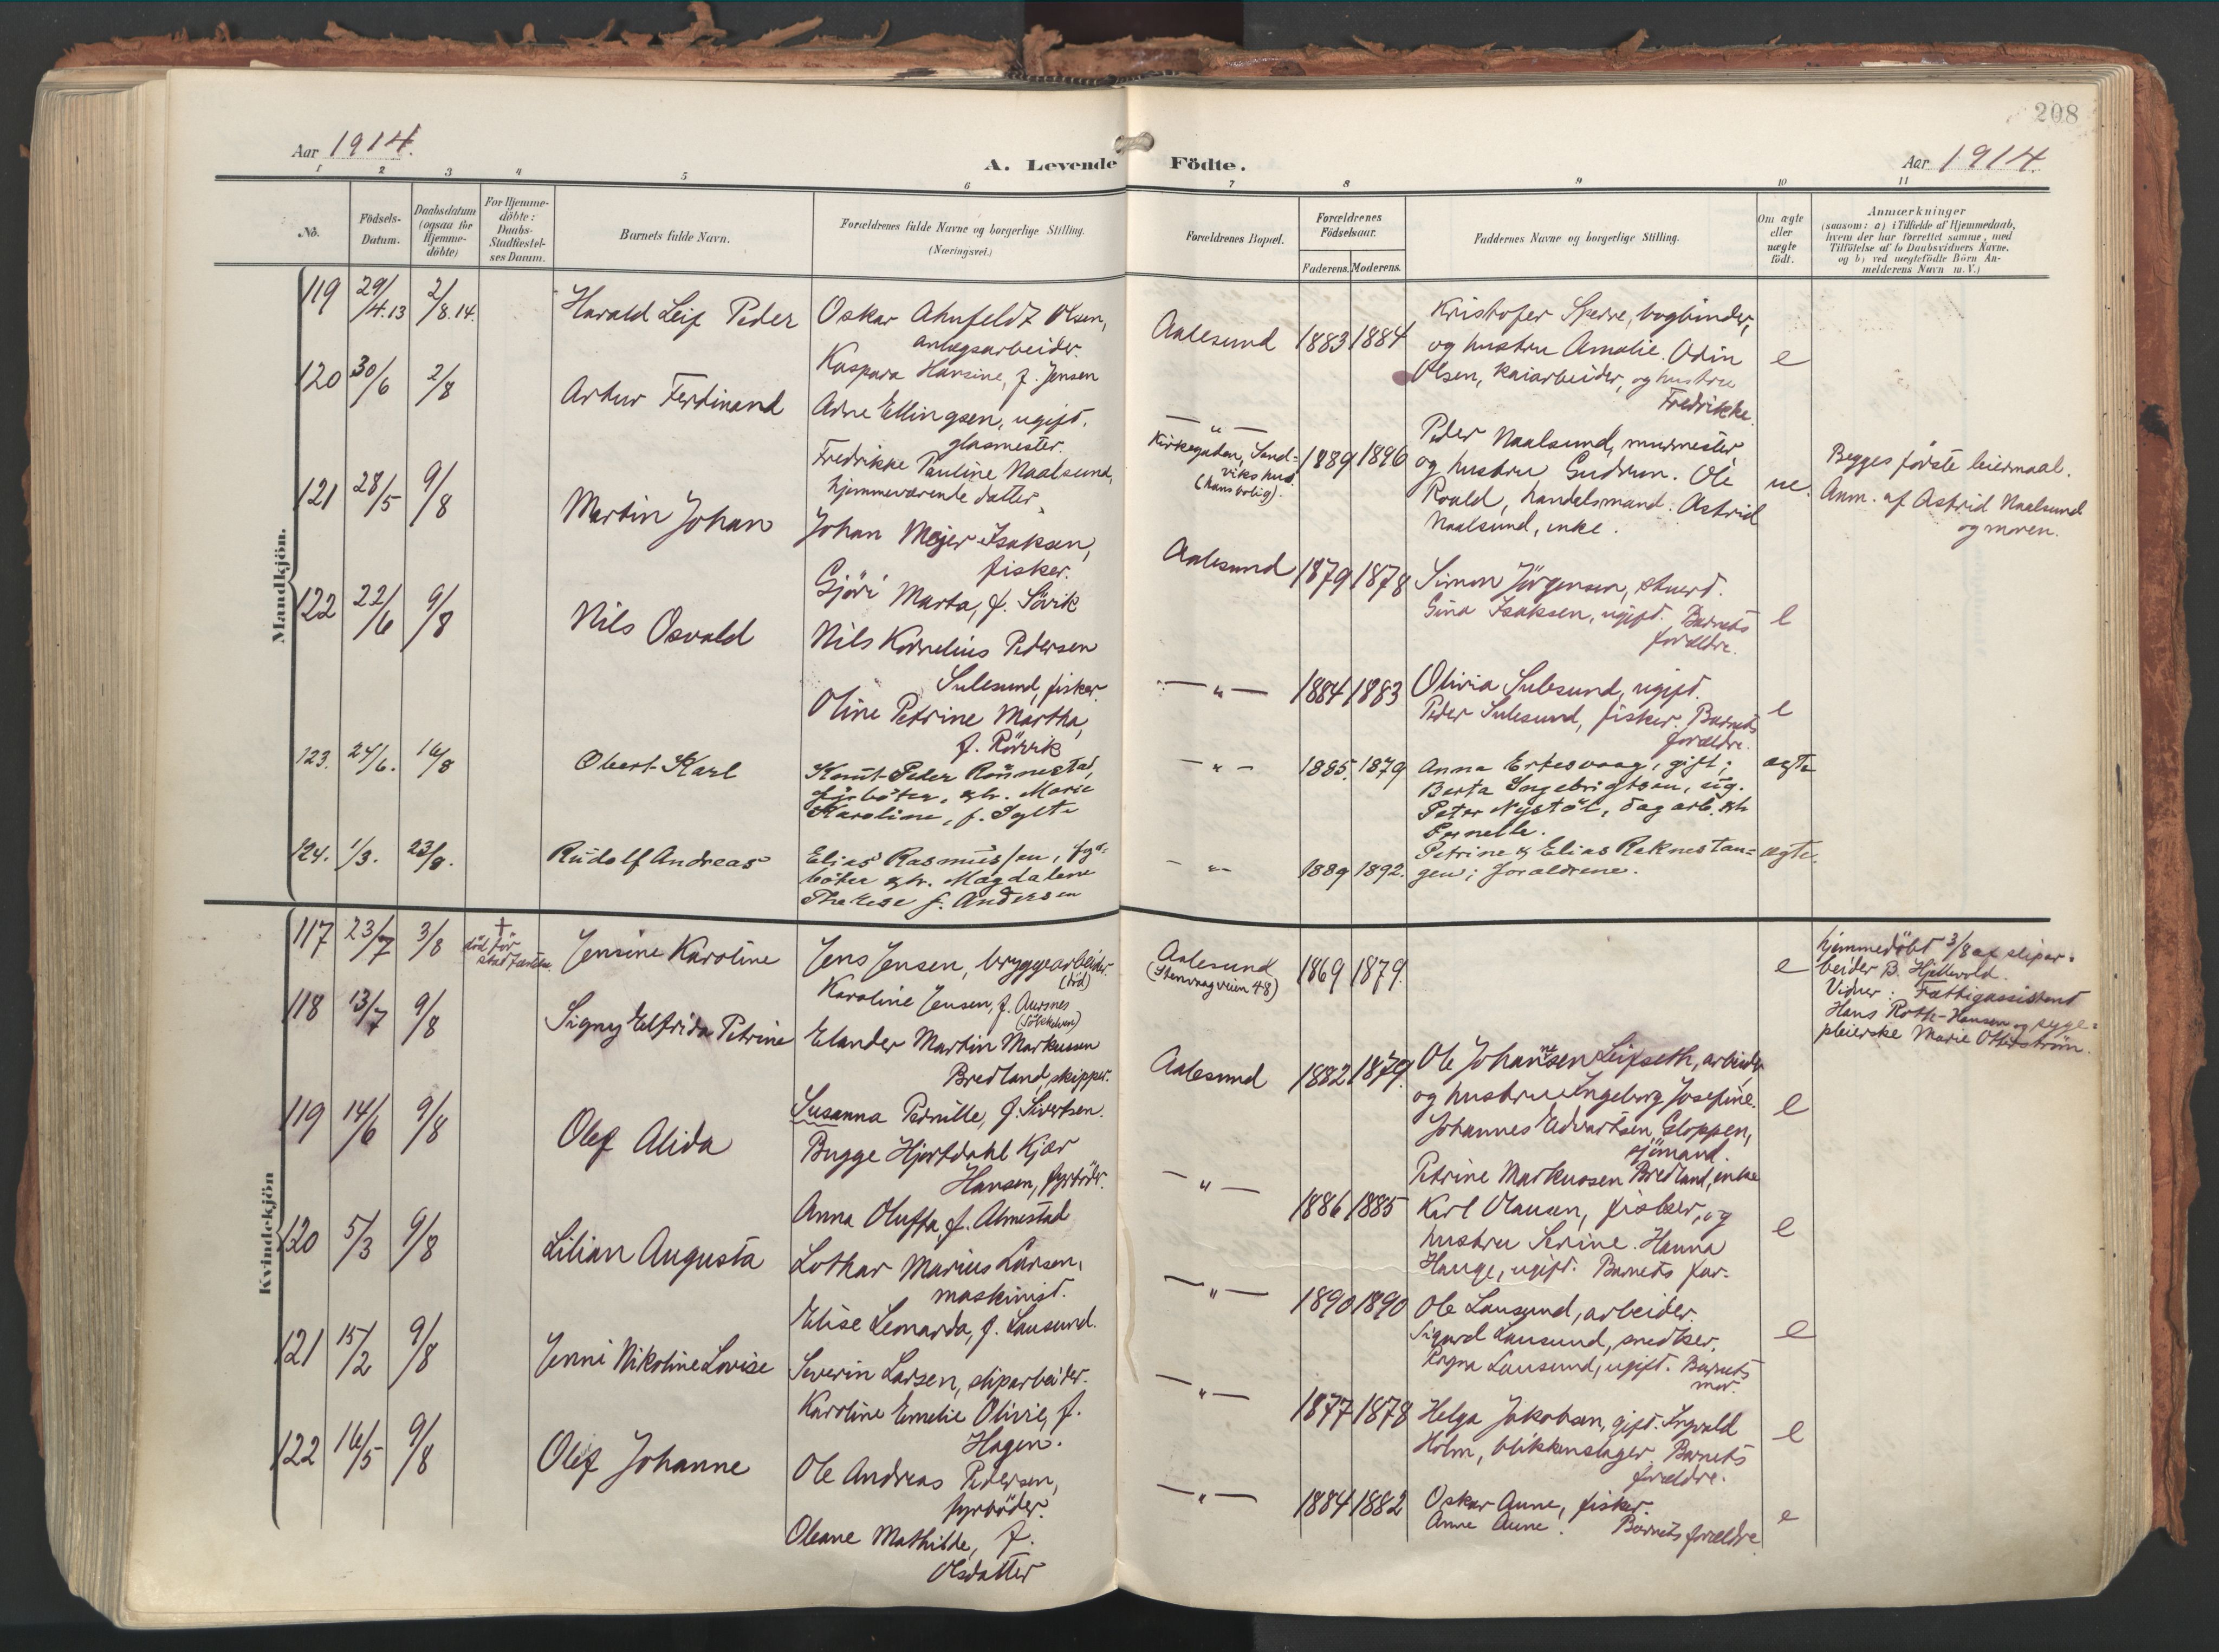 208
Aar 1914.
A. Levende Födte.
Aar 1914.
1 2 3 4 5 6 7 8 9 10 11
No.
Födsels-
Datum.
Daabsdatum
(ogsaa for
Hjemme-
döbte)
For Hjemme-
döbte:
Daabs-
Stadfæstel-
ses Datum.
Barnets fulde Navn.
Forældrenes fulde Navne og borgerlige Stilling.
(Næringsvei.)
Forældrenes Bopæl.
Forældrenes
Födselsaar.
Faderens. Moderens.
Faddernes Navne og borgerlige Stilling.
Om ægte
eller
uægte
födt.
Anmærkninger
(saasom: a) i Tilfælde af Hjemmedaab,
hvem der har forrettet samme, med
Tilföielse af to Daabsvidners Navne,
og b) ved uægtefödte Börn An-
melderens Navn m. V.)
Mandkjön.
119 29/4.13 2/8.14. Harald Leif Peder
Oskar Ahnfeldt Olsen,
anlægsarbeider.
Kaspara Hansine, f. Jensen
Aalesund 1883 1884
Kristofer Skerve, bogbinder,
og hustru Amalie. Odin
Olsen, kaiarbeider, og hustru
Fredrikke.
e
120 30/6 2/8 Artur Ferdinand
Arne Ellingsen, ugift,
glasmester.
Fredrikke Pauline Naalsund,
hjemmeværende datter.
— " —
Kirkegaten, Sand-
viks hus.
(hans bolig).
1889 1896
Peder Naalsund, murmester,
og hustru Gudrun. Ole
Roald, handelsmand. Astrid
Naalsund, enke.
ue.
Begges første leiermaal.
Anm. af Astrid Naalsund
og moren.
121 28/5 9/8 Martin Johan
Johan Mejer Isaksen,
fisker.
Gjöri Marta, f. Sövik
Aalesund 1879 1878
Simon Jörgensen, stuert.
Gina Isaksen, ugift. Barnets
forældre.
e
122 22/6 9/8 Nils Osvald
Nils Kornelius Pedersen
Sulesund, fisker
Oline Petrine Martha,
f. Rörvik
— " — 1884 1883
Olivia Sulesund, ugift.
Peder Sulesund, fisker. Barnets
forældre.
e
123. 24/6. 16/8 Obert Karl
Knut Peder Rönnestad,
fyrböter, & h. Marie
Karoline, f. Sylte
— " — 1885. 1879
Anna Ertesvaag, gift;
Berta Ingebrigtsen, ug.
Peter Nystöl, dagarb. & h
Pernelle.
ægte
124. 1/3. 23/8. Rudolf Andreas
Elias Rasmussen, fyr-
böter & h. Magdalene
Therese f. Andersen
— " — 1889 1892.
Petrine & Elias Reknestan-
gen; forældrene.
ægte.
Kvindekjön
117 23/7 3/8
†
död för
stadfæstelse.
Jensine Karoline
Jens Jensen, bryggearbeider.
(död)
Karoline Jensen, f. Aursnes
Aalesund
(Stenvaagveien 48)
1869 1879.
e
hjemmedöbt 3/8 af sliper-
beider B. Hjellvold.
Vidner: Fattigassistent
Hans Roth-Hansen og syge-
pleierske Marie Otterström.
118 13/7 9/8 Signy Elfrida Petrine
Elander Martin Markussen
Bredland, skipper.
Susanna Pernille, f. Sivertsen.
Aalesund 1882 1879.
Ole Johannesen Lifseth, arbeider
og hustru Ingeborg Josefine.
Johannes Edvartsen Gloppen,
sjömand.
Petrine Markussen Bredland, enke
e
119 14/6 9/8 Olef Alida
Bugge Hjortdahl Kjær
Hansen, fyrböder.
Anna Oluffa, f. Almestad
— " — 1886 1885
Karl Clausen, fisker, og
hustru Serine. Hanna
Hauge, ugift. Barnets far.
e
120 5/3 9/8 Lilian Augusta
Lothar Marius Larsen,
maskinist.
Elise Leonarda, f. Lausund.
— " — 1890 1890
Ole Lausund, arbeider.
Sigurd Lausund, snedker.
Ragna Lausund, ugift. Barnets
mor.
e
121 15/2 9/8 Jenni Nikoline Lovise
Severin Larsen, sliparbeider.
Karoline Emelie Olivie, f.
Hagen.
— " — 1877 1878
Helga Jakobsen, gift. Ingvald
Holm, blikkenslager. Barnets
forældre.
e
122 16/5 9/8 Olef Johanne
Ole Andreas Pedersen,
fyrböder.
Oleane Mathilde, f.
Olsdatter
— " — 1884 1882
Oskar Aune, fisker.
Anne Aune. Barnets forældre
e